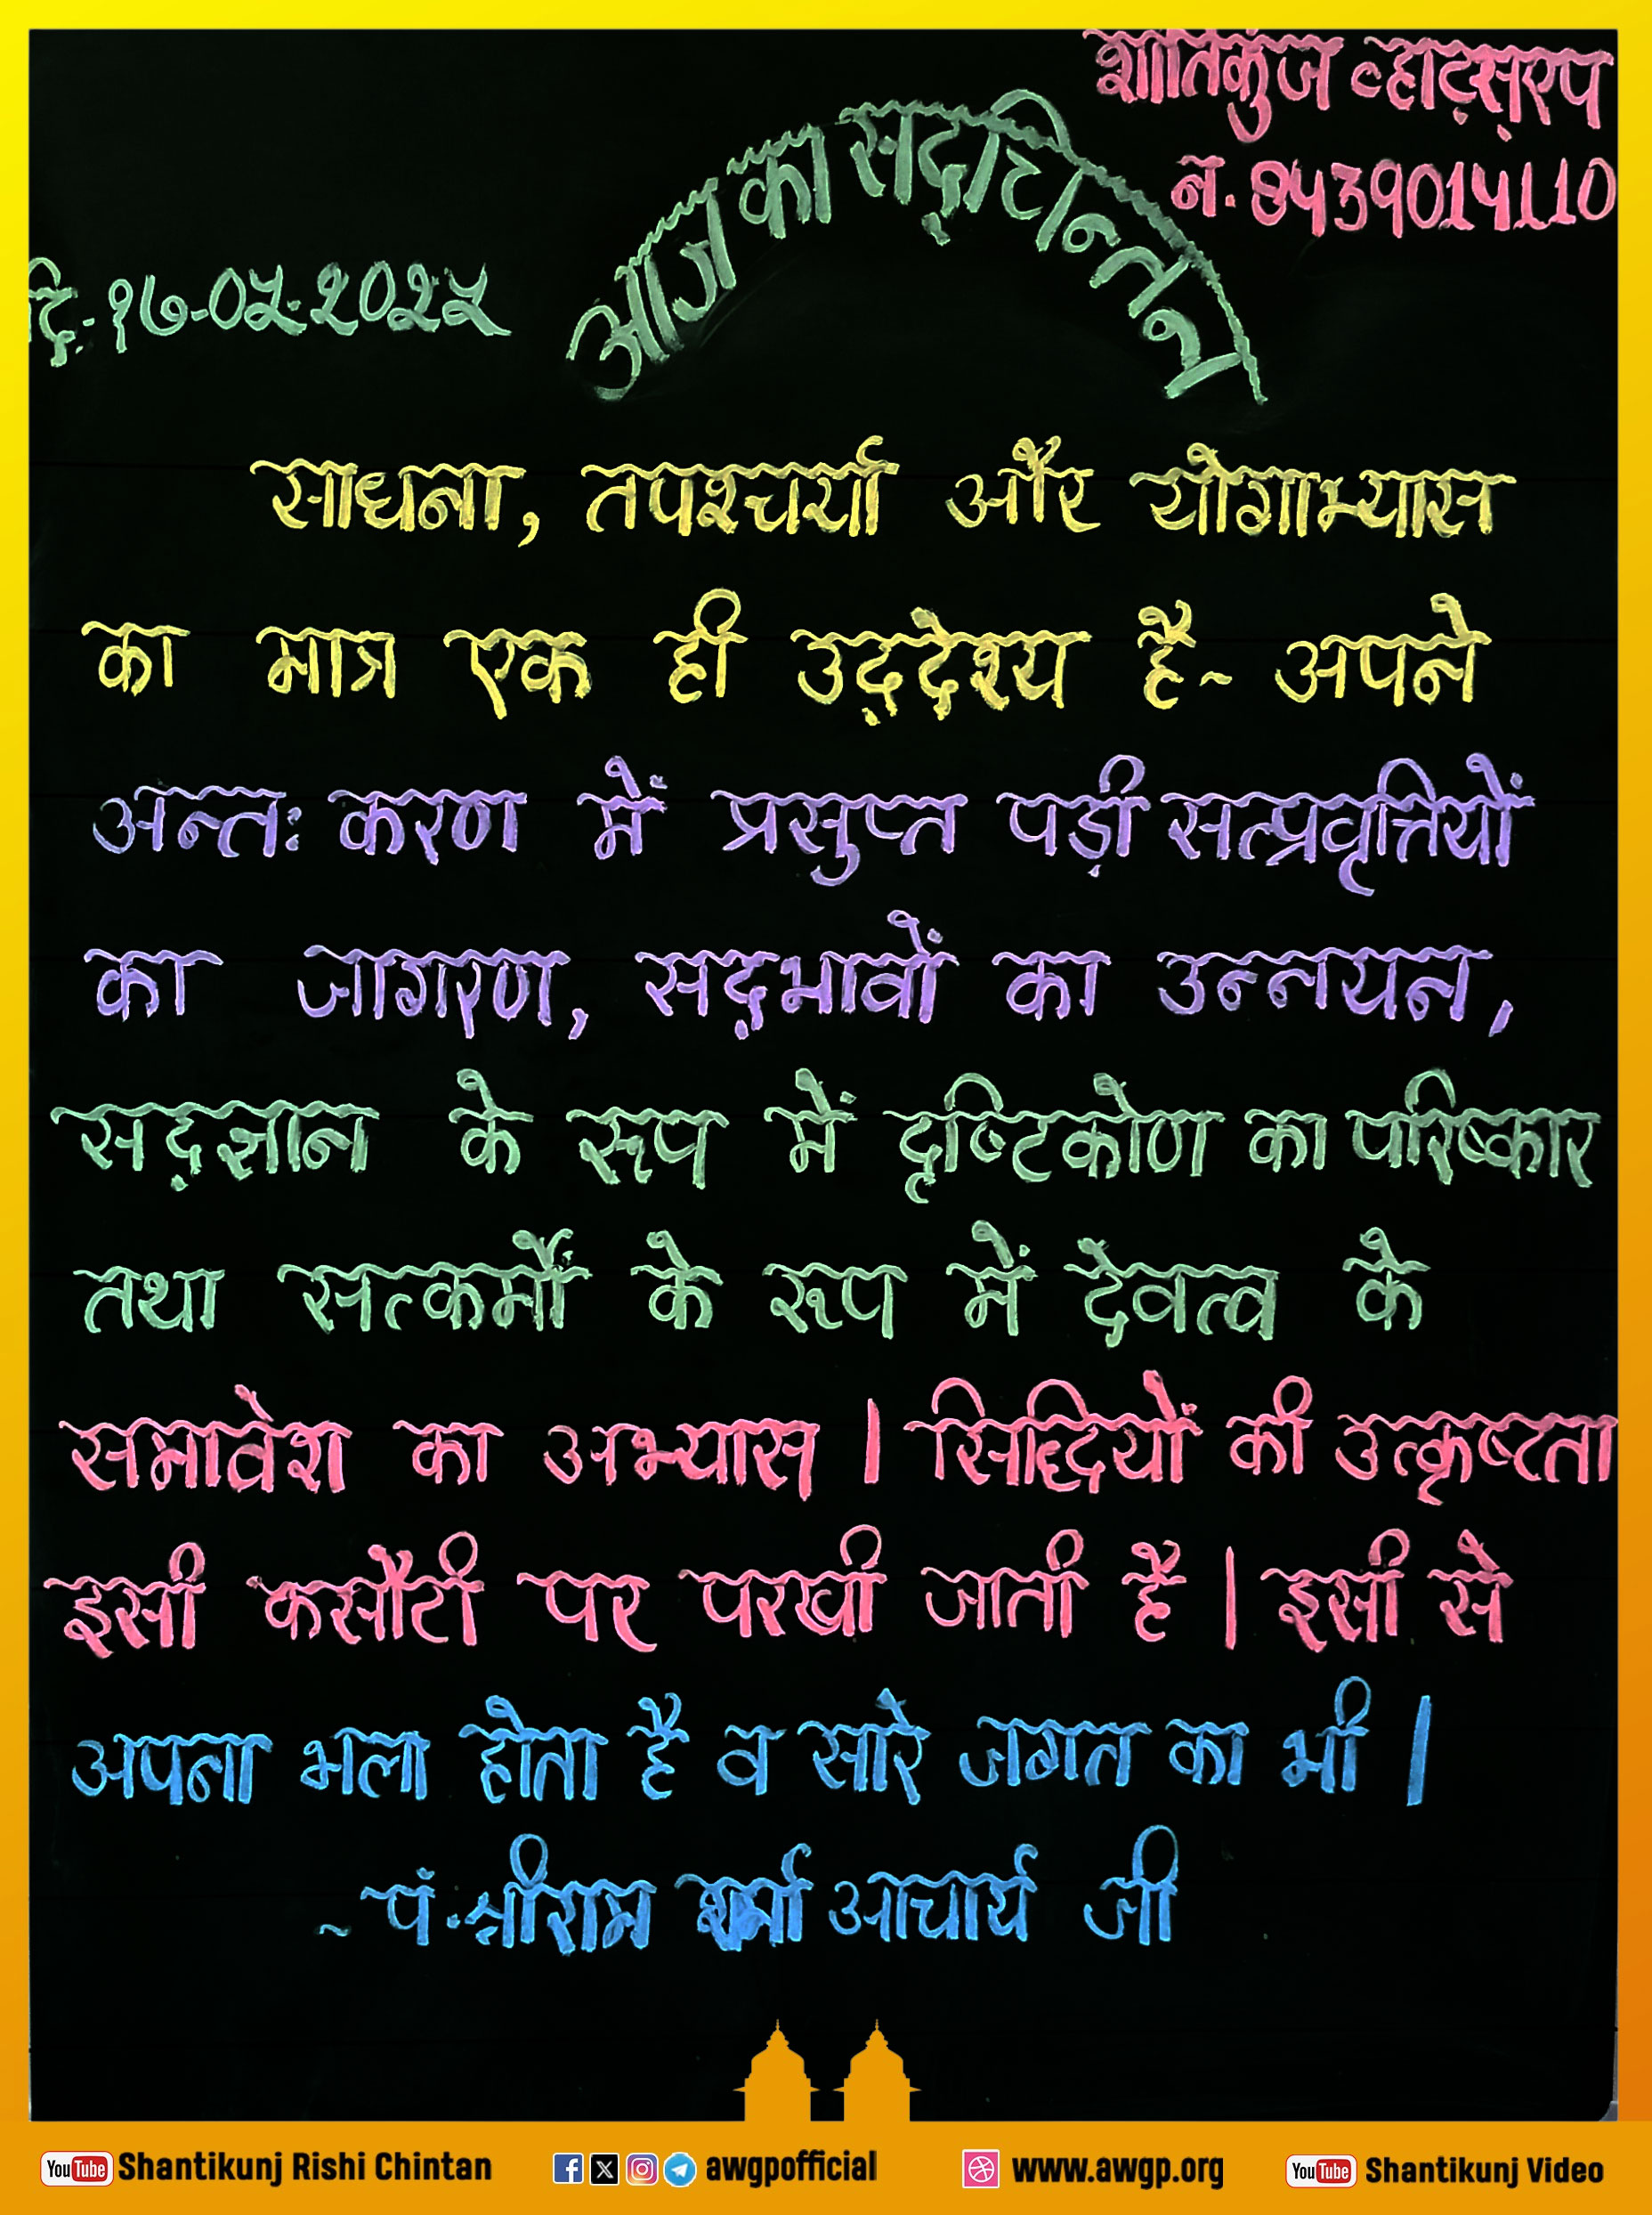 शांतिकुंज व्हाट्सएप
नं. 8439014110
आज का सद्चिन्तन
दि.-१७-०५-२०२५
साधना, तपश्चर्या और योगाभ्यास
का मात्र एक ही उद्देश्य है- अपने
अन्तः करण में प्रसुप्त पड़ी सत्प्रवृत्तियों
का जागरण, सद्भावों का उन्नयन,
सद्ज्ञान के रूप में दृष्टिकोण का परिष्कार
तथा सत्कर्मों के रूप में देवत्व के
समावेश का अभ्यास । सिद्धियों की उत्कृष्टता
इसी कसौटी पर परखी जाती है । इसी से
अपना भला होता है व सारे जगत का भी ।
~ पं.श्रीराम शर्मा आचार्य जी
YouTube Shantikunj Rishi Chintan awgpofficial www.awgp.org YouTube Shantikunj Video